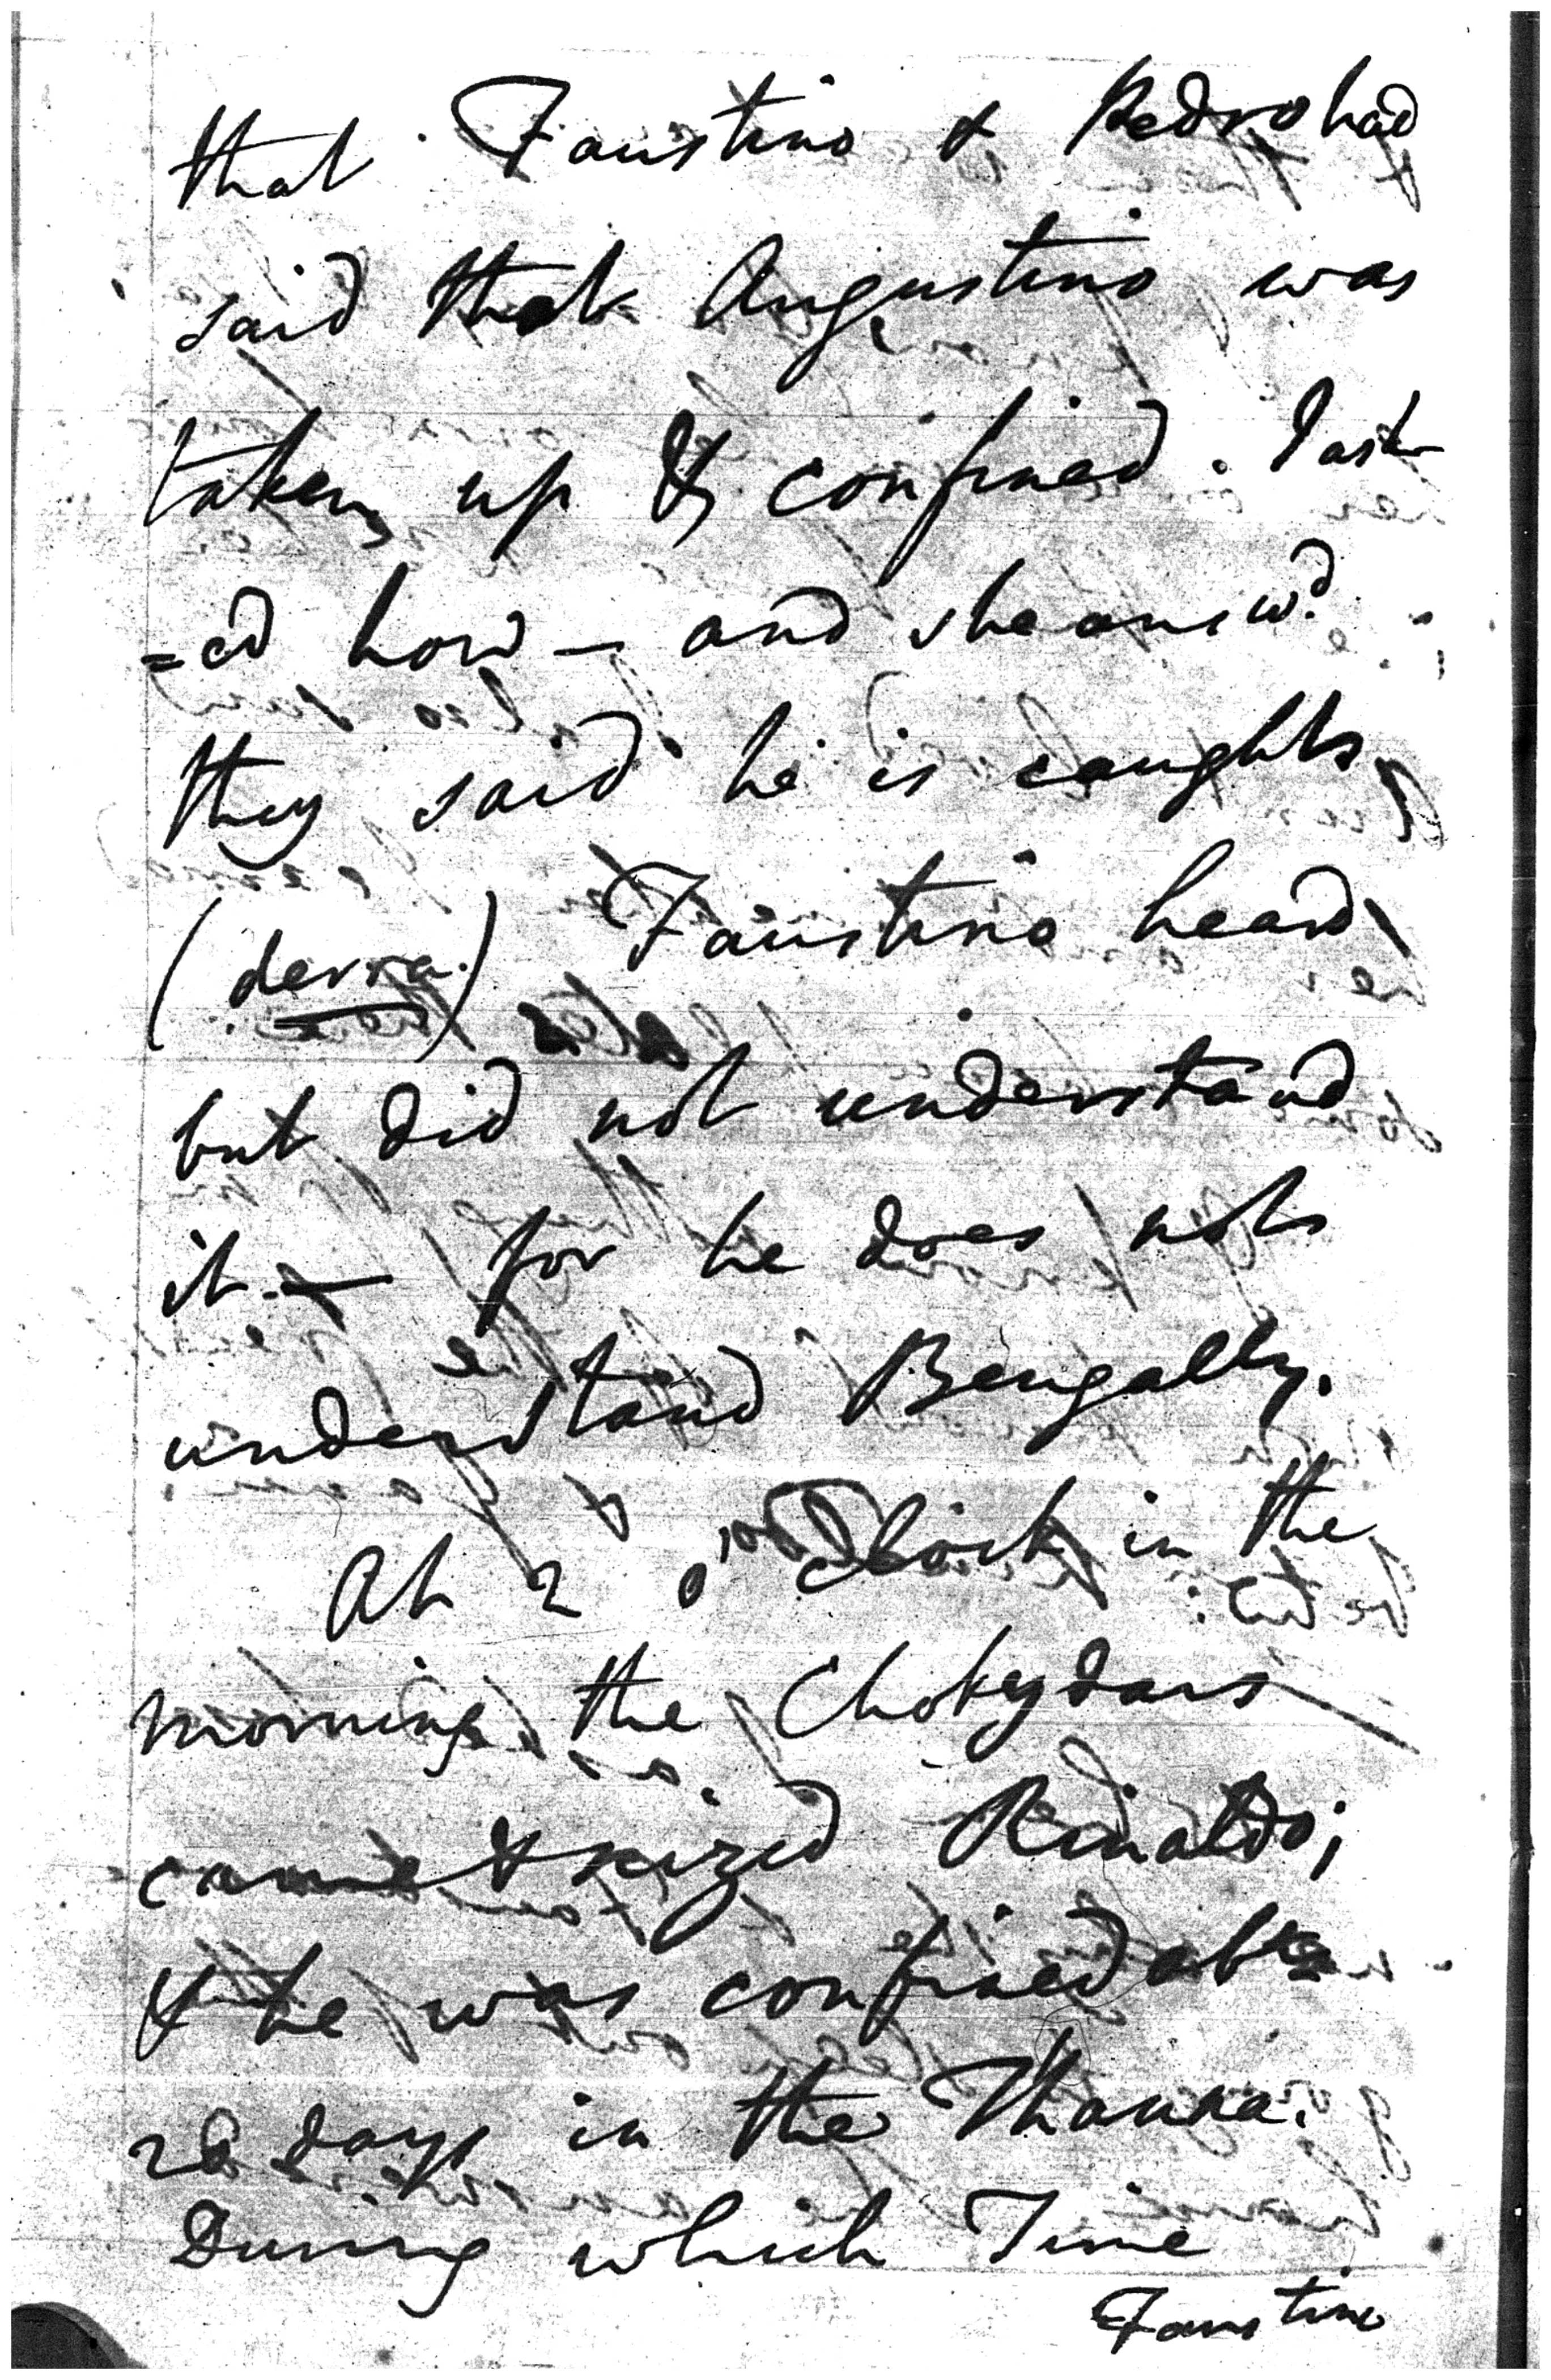 that Faustino & Pedro had
said that Augustino was
taken up & confined. I ask
=ed how – and she answd.
they said he is caught
(derra.) Faustino heard
but did not understand
it – for he does not
understand Bengally.
At 2 o'clock in the
morning the Chokeydars
came & seized Rinaldo;
& he was confined
days in the Thanna.
During which Time
Faustino